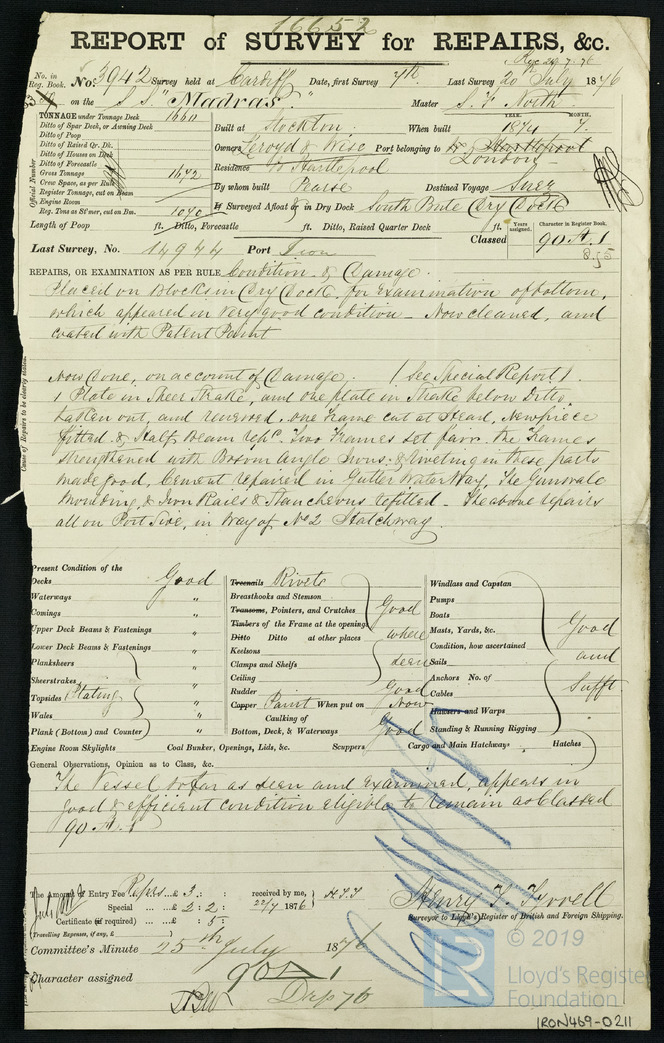 16652
REPORT of SURVEY for REPAIRS, &c.
No. in Reg. Book.
No. 3942 Survey held at Cardiff Date, first Survey 7th Last Survey 20 July 1876
on the S.S. "Madras" Master S. F. North
TONNAGE under Tonnage Deck 1660
Ditto of Spar Deck, or Awning Deck
Ditto of Poop
Ditto of Raised Qr. Dk.
Ditto of Houses on Deck
Ditto of Forecastle
Gross Tonnage 1692
Crew Space, as per Rule
Register Tonnage, cut on Beam
Engine Room
Reg. Tons as St'mer, cut on Bm. 1090
Official Number
Built at Stockton When built 1874 7
YEAR. MONTH.
Owners Leroyd & Wise Port belonging to W. Hartlepool
London
Residence W Hartlepool
By whom built Pearse Destined Voyage Suez
If Surveyed Afloat or in Dry Dock South Bute Dry Dock
Length of Poop ft. Ditto, Forecastle ft. Ditto, Raised Quarter Deck ft.
Last Survey, No. 14944 Port Classed Years assigned. Character in Register Book. 90 A.1
REPAIRS, OR EXAMINATION AS PER RULE Condition & Damage.
Placed on Blocks in Dry Dock for examination of bottom,
which appeared in very good condition - Now cleaned, and
coated with Patent Paint
Cause of Repairs to be clearly stated.
Now Done, on account of Damage. (See Special Report).
1 Plate in Sheer Strake, and one plate in Strake below Ditto
taken out, and renewed. one Frame cut at Head, New piece
fitted & Half beam repd. Two Frames set fair. the Frames
strengthened with Bosom Angle Irons & riveting in these parts
made good, Cement repaired in Gutter Water Way. The Gunwale
Moulding, & Iron Rails & Stanchions refitted - The above repairs
all on Port Side, in way of No 2 Hatchway.
Present Condition of the
Decks Good
Waterways "
Comings "
Upper Deck Beams & Fastenings "
Lower Deck Beams & Fastenings "
Planksheers
Sheerstrakes "
Topsides Plating "
Wales
Plank (Bottom) and Counter "
Engine Room Skylights Coal Bunker, Openings, Lids, &c. Scuppers Cargo and Main Hatchways Hatches
Treenails Rivets
Breasthooks and Stemson
Transoms, Pointers, and Crutches Good
Timbers of the Frame at the openings
Ditto Ditto at other places where
Keelsons
Clamps and Shelfs seen
Ceiling
Rudder Good
Copper Paint When put on Now
Caulking of
Bottom, Deck, & Waterways Good
Windlass and Capstan
Pumps
Boats
Masts, Yards, &c. Good
Condition, how ascertained
Sails and
Anchors No. of
Cables Sufft
Hawsers and Warps
Standing & Running Rigging
General Observations, Opinion as to Class, &c.
The Vessel so far as seen and examined, appears in
good & efficient condition eligible to remain as Classed
90 A.1
The Amount of Entry Fee Reprs ...£ 3 : : received by me,
Special ...£ 2 : 2 : 22/7 1876
Certificate (if required) ... : 5 :
(Travelling Expenses, if any, £ )
Henry T. Tyrrell
Surveyor to Lloyd's Register of British and Foreign Shipping.
Committee's Minute 25th July 1876
Character assigned 90 A 1
© 2019
Lloyd's Register
Foundation
IRON469-0211